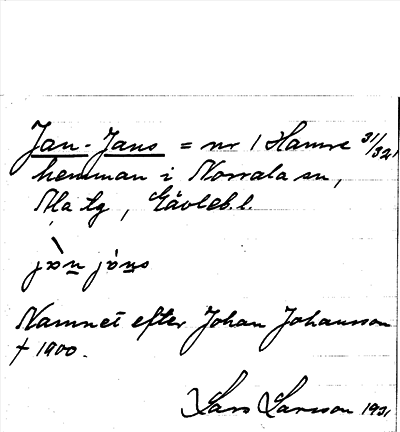 Jan-Jans = nr 1 Hamre 31/32
hemman i Norrala sn,
Ala tg, Gävleb.l.
jàn jáns
Namnet efter Johan Johansson
† 1900.
Lars Larsson